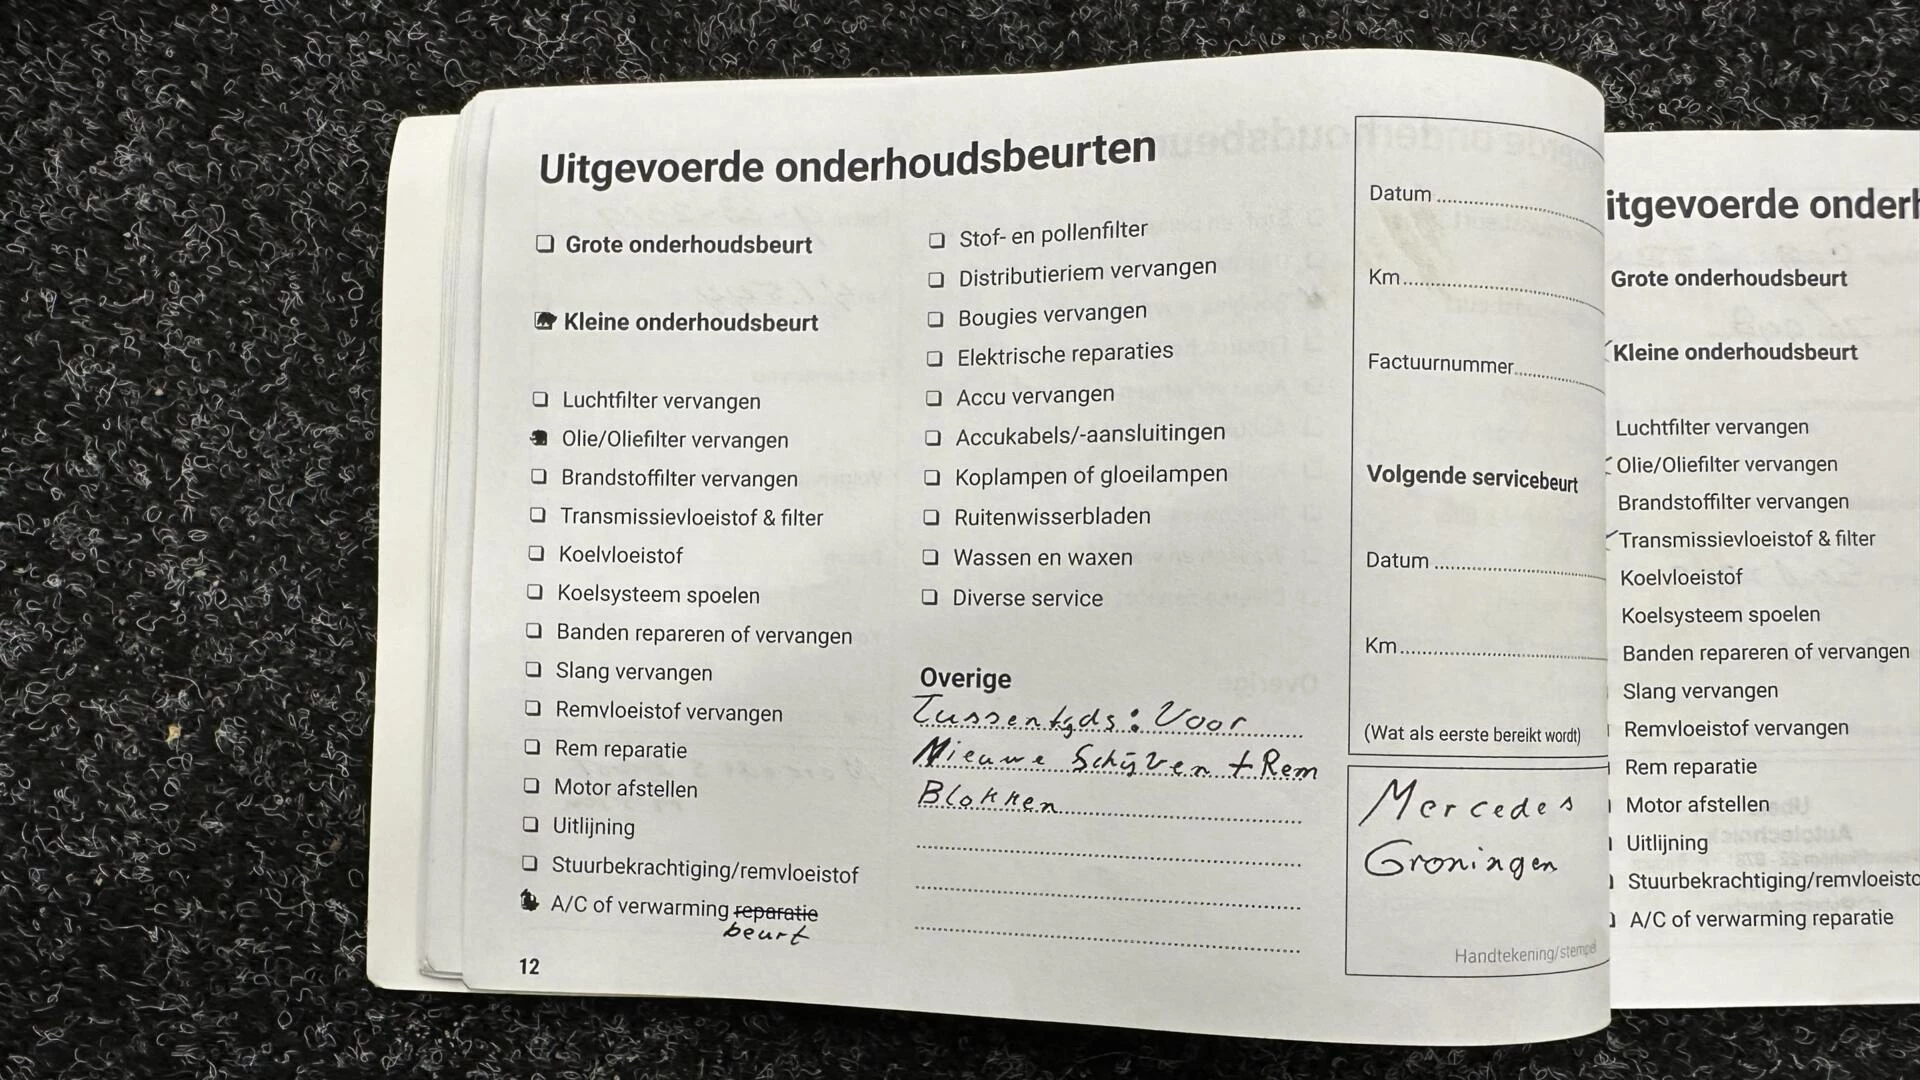 Uitgevoerde onderhoudsbeurten
Grote onderhoudsbeurt
Kleine onderhoudsbeurt
Luchtfilter vervangen
Olie/Oliefilter vervangen
Brandstoffilter vervangen
Transmissievloeistof & filter
Koelvloeistof
Koelsysteem spoelen
Banden repareren of vervangen
Slang vervangen
Remvloeistof vervangen
Rem reparatie
Motor afstellen
Uitlijning
Stuurbekrachtiging/remvloeistof
A/C of verwarming reparatie
beurt
12
Stof- en pollenfilter
Distributieriem vervangen
Bougies vervangen
Elektrische reparaties
Accu vervangen
Accukabels/-aansluitingen
Koplampen of gloeilampen
Ruitenwisserbladen
Wassen en waxen
Diverse service
Overige
Tussentyds: Voor
Nieuwe Schijven + Rem
Blokken
Datum
Km
Factuurnummer
Volgende servicebeurt
Datum
Km
(Wat als eerste bereikt wordt)
Mercedes
Groningen
Handtekening/stempel
itgevoerde onderh
Grote onderhoudsbeurt
Kleine onderhoudsbeurt
Luchtfilter vervangen
Olie/Oliefilter vervangen
Brandstoffilter vervangen
Transmissievloeistof & filter
Koelvloeistof
Koelsysteem spoelen
Banden repareren of vervangen
Slang vervangen
Remvloeistof vervangen
Rem reparatie
Motor afstellen
Uitlijning
Stuurbekrachtiging/remvloeisto
A/C of verwarming reparatie